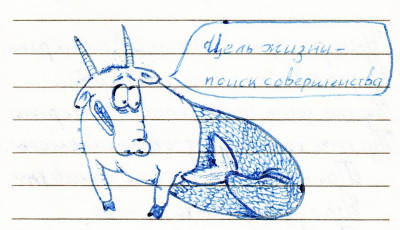 Цель жизни -
поиск совершенства